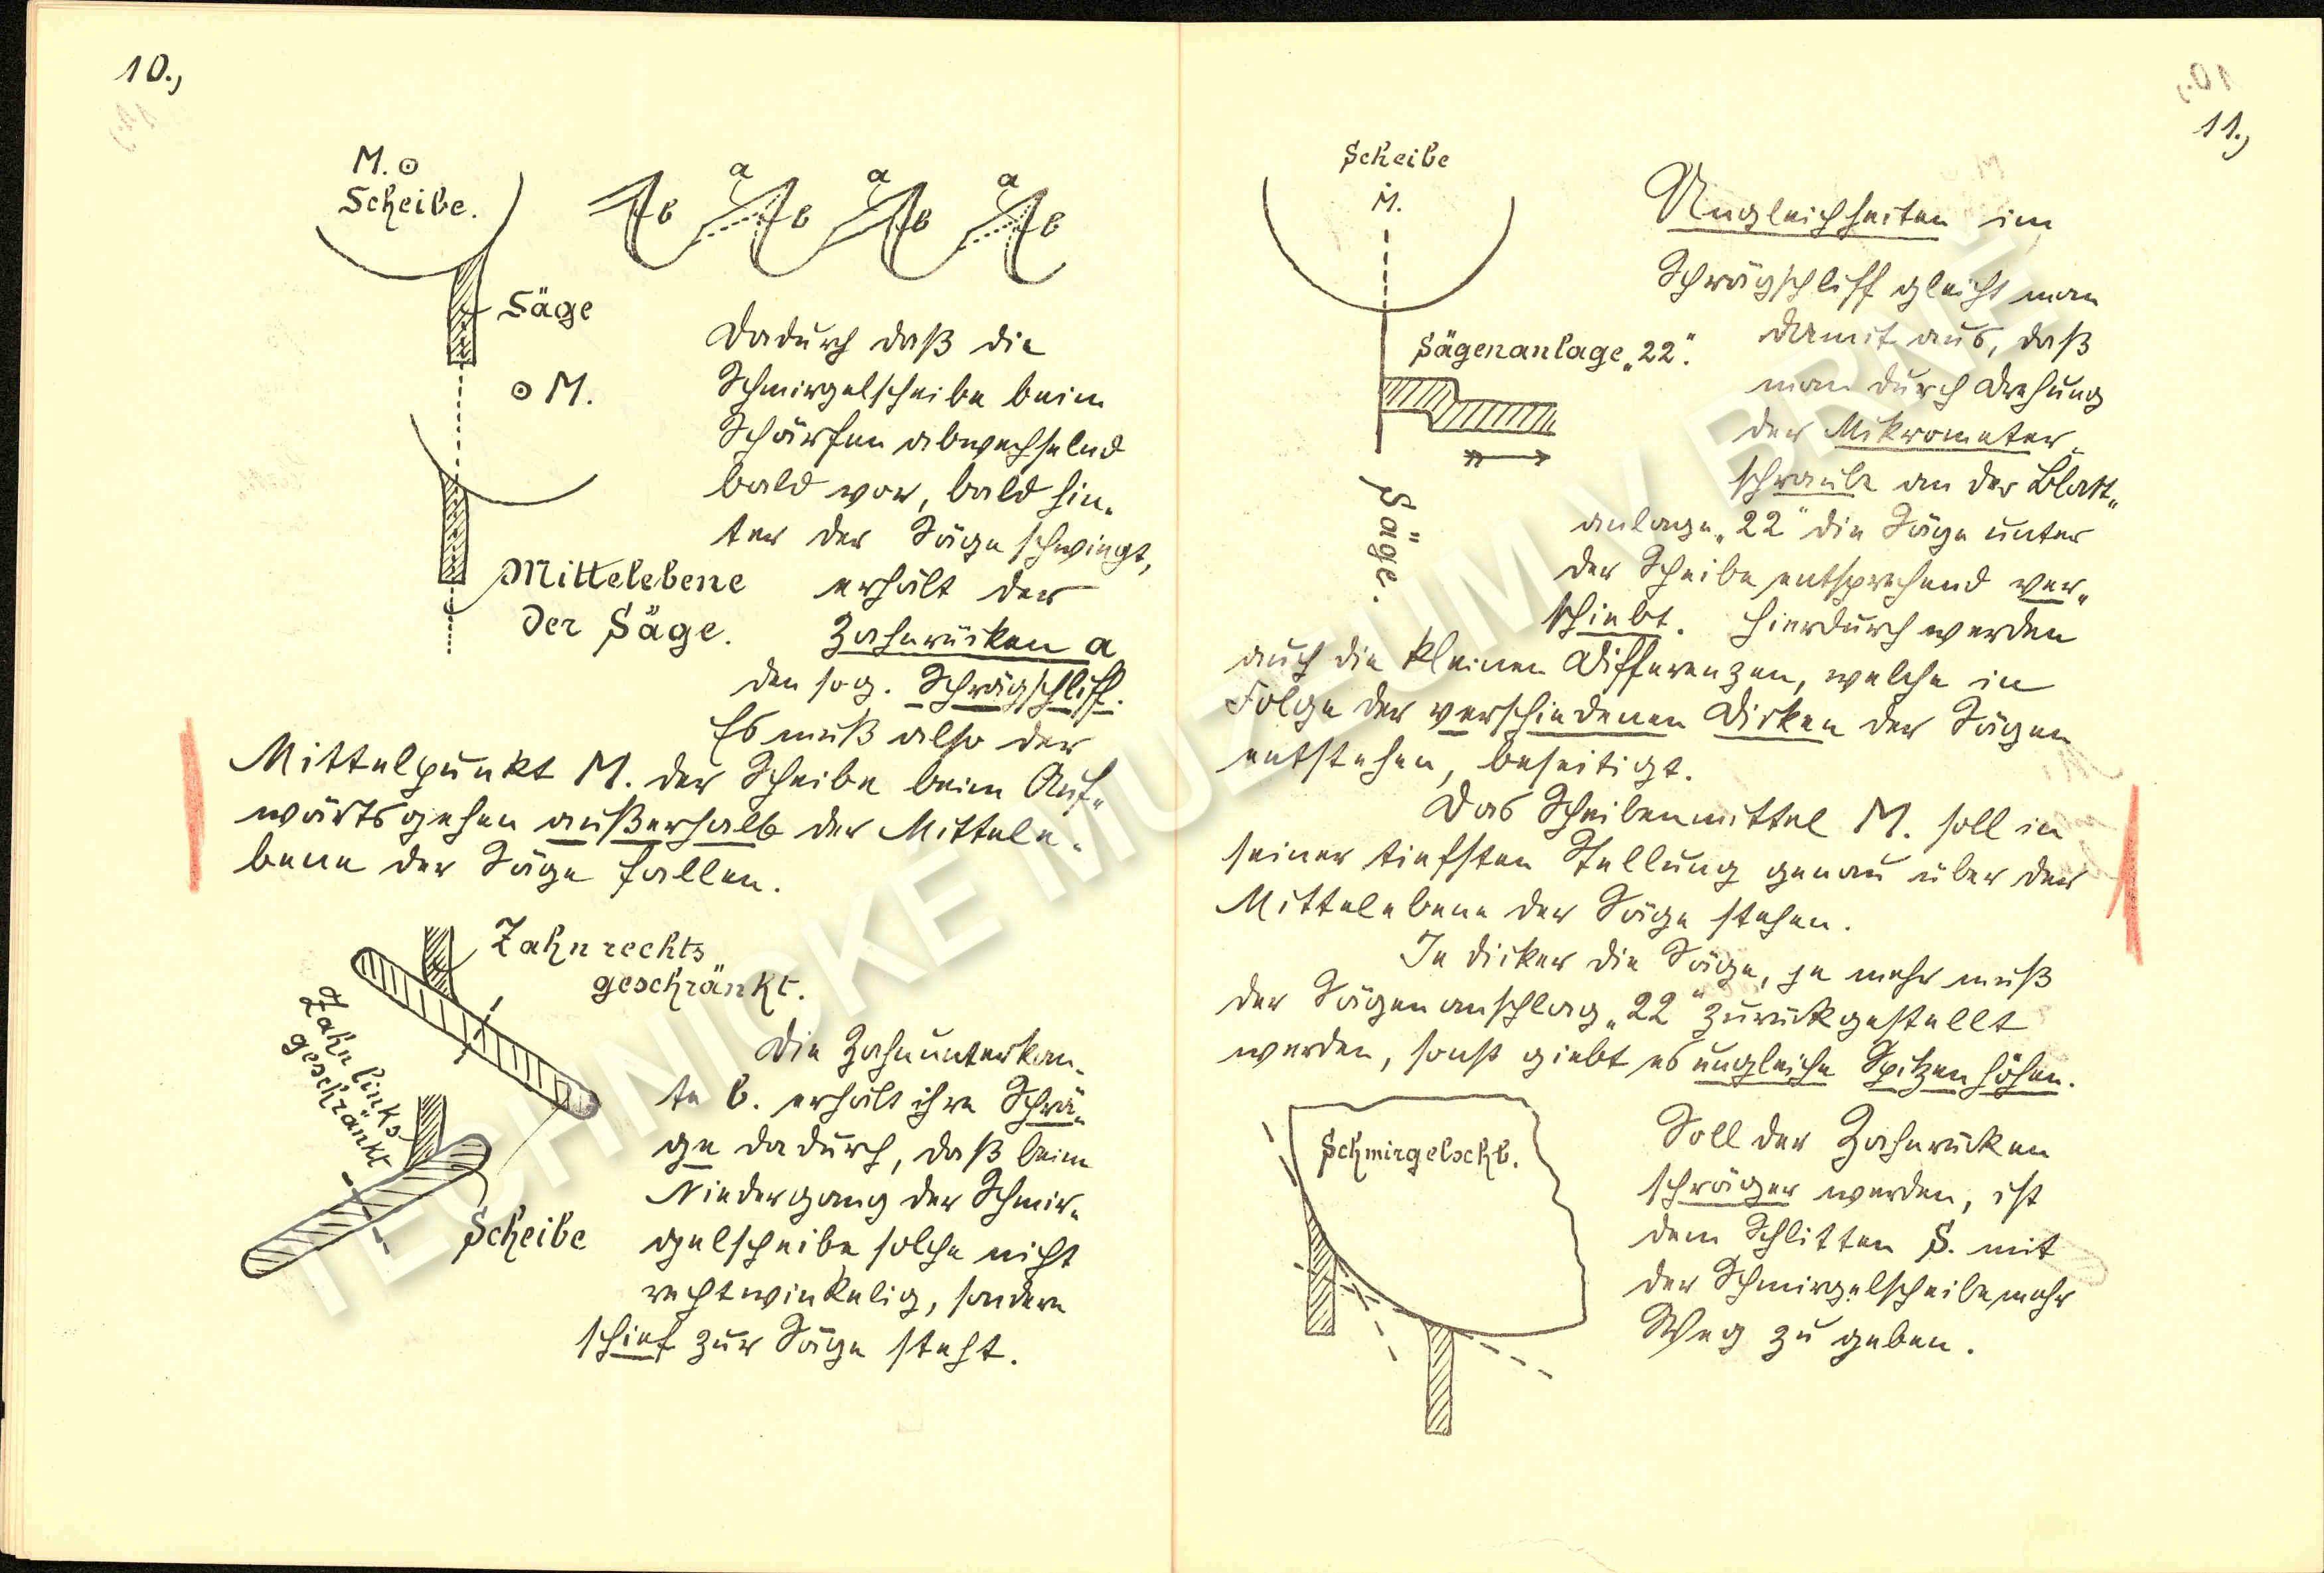 10.,
M.
Scheibe.
a a a
b b b b
Säge
M.
Mittelebene
der Säge.
Dadurch daß die
Schmirgelscheibe beim
Schärfen abwechselnd
bald vor, bald hin„
ter der Säge schwingt,
erhält der
Zahnrücken a
den sog. Schrägschliff.
Es muß also der
Mittelpunkt M. der Scheibe beim Auf„
wärtsgehen außerhalb der Mittele„
bene der Säge fallen.
Zahn rechts
geschränkt.
Zahn links
geschränkt
Scheibe
Die Zahnunterkan„
te b. erhält ihre Schrä„
ge dadurch, daß beim
Niedergang der Schmir„
gelscheibe solche nicht
rechtwinkelig, sondern
schief zur Säge steht.
11.,
Scheibe
M.
Sägenanlage „22“.
Säge.
Ungleichheiten im
Schrägschliff gleicht man
damit aus, daß
man durch Drehung
der Mikrometer„
schraube an der Blatt„
anlage „22“ die Säge unter
der Scheibe entsprechend ver„
schiebt. Hierdurch werden
auch die kleinen Differenzen, welche in
Folge der verschiedenen Dicken der Sägen
entstehen, beseitigt.
Das Scheibenmittel M. soll in
seiner tiefsten Stellung genau über der
Mittelebene der Säge stehen.
Je dicker die Säge, je mehr muß
der Sägenanschlag „22“ zurückgestellt
werden, sonst giebt es ungleiche Spitzenhöhen.
Schmirgelschb.
Soll der Zahnrücken
schräger werden, ist
dem Schlitten S. mit
der Schmirgelscheibe mehr
Weg zu geben.
TECHNICKÉ MUZEUM V BRNĚ